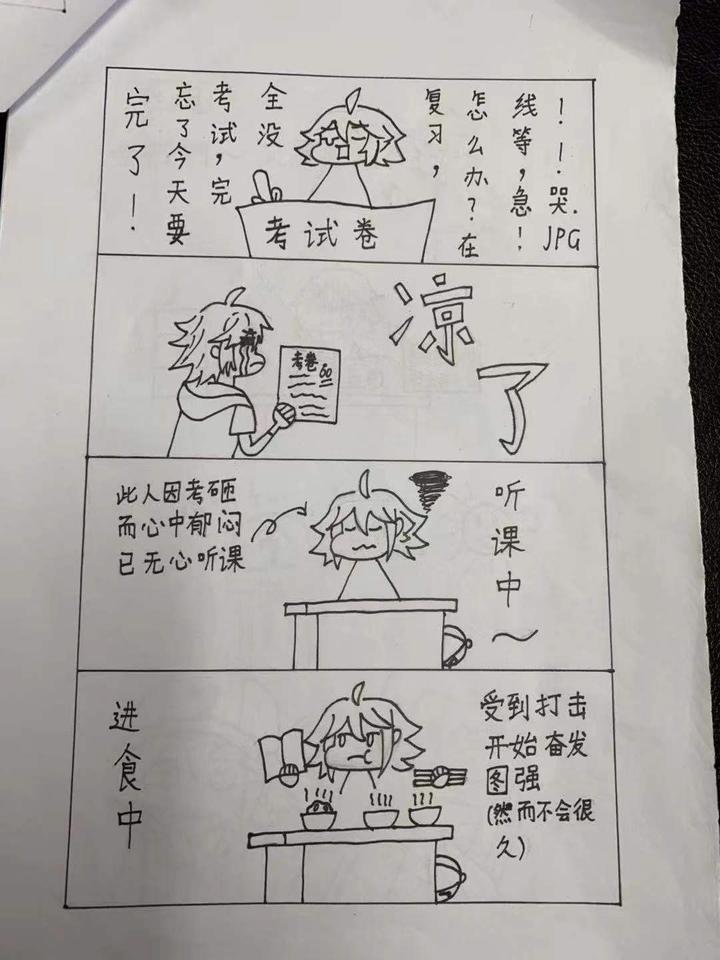 完了！
忘了今天要
考试，完
全没
复习，
怎么办？在
线等，急！
！！哭.JPG
考试卷
凉了
考卷
60
此人因考砸
而心中郁闷
已无心听课
听课中～
进食中
受到打击
开始奋发
图强
(然而不会很
久)